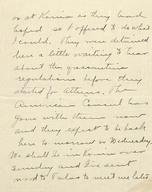 or at Karina as they had
hoped so I offered to do what
I could. They were detained
here a little waiting to hear
about the quarantine
regulations before they
started for Athens. The
American Consul has
gone with them now
and they expect to be back
here tomorrow or Wednesday.
We shall be in town over
Sunday and I've sent
word to Paulos to meet me later